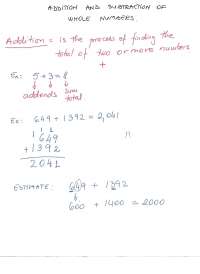 ADDITION AND SUBTRACTION OF
WHOLE NUMBERS.
Addition = is the process of finding the
total of two or more numbers
+
Ex: 5 + 3 = 8
addends sum
total
Ex: 649 + 1392 = 2,041
1 1
1649
+1392
2041
ESTIMATE: 649 + 1392
600 + 1400 = 2000